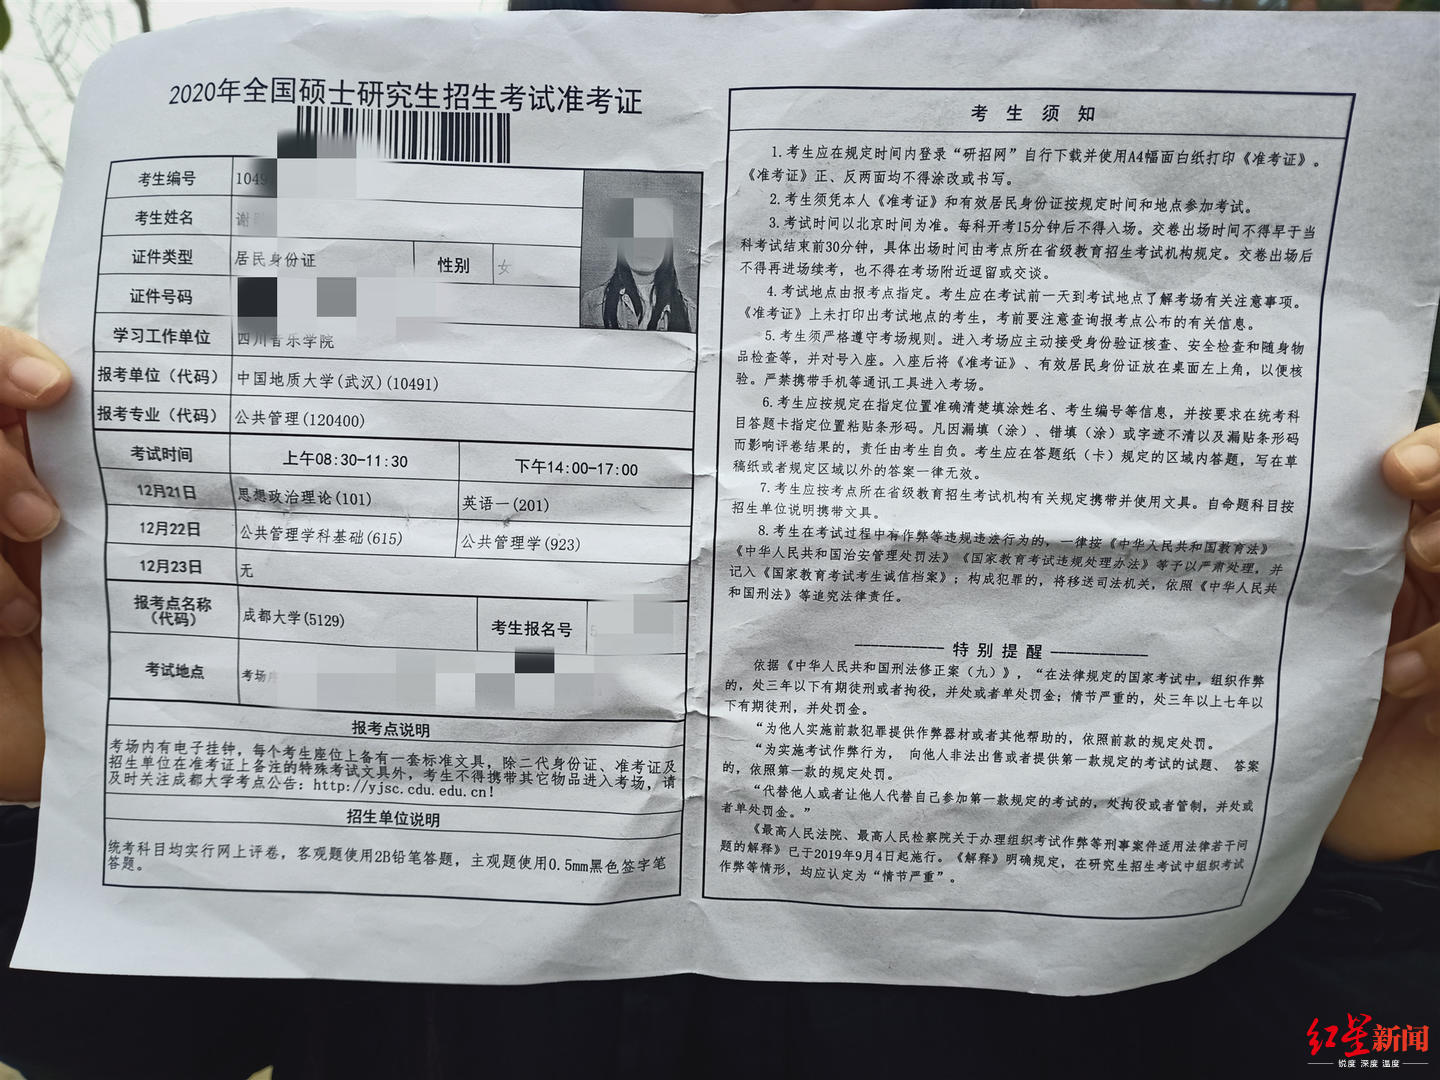 2020年全国硕士研究生招生考试准考证
考生编号 1049
考生姓名 谢
证件类型 居民身份证 性别 女
证件号码
学习工作单位 四川音乐学院
报考单位（代码） 中国地质大学(武汉)(10491)
报考专业（代码） 公共管理(120400)
考试时间 上午08:30-11:30 下午14:00-17:00
12月21日 思想政治理论(101) 英语一(201)
12月22日 公共管理学科基础(615) 公共管理学(923)
12月23日 无
报考点名称
（代码） 成都大学(5129) 考生报名号
考试地点 考场
报考点说明
考场内有电子挂钟，每个考生座位上备有一套标准文具，除二代身份证、准考证及
招生单位在准考证上备注的特殊考试文具外，考生不得携带其它物品进入考场，请
及时关注成都大学考点公告：http://yjsc.cdu.edu.cn！
招生单位说明
统考科目均实行网上评卷，客观题使用2B铅笔答题，主观题使用0.5mm黑色签字笔
答题。
考 生 须 知
1.考生应在规定时间内登录“研招网”自行下载并使用A4幅面白纸打印《准考证》。
《准考证》正、反两面均不得涂改或书写。
2.考生须凭本人《准考证》和有效居民身份证按规定时间和地点参加考试。
3.考试时间以北京时间为准。每科开考15分钟后不得入场。交卷出场时间不得早于当
科考试结束前30分钟，具体出场时间由考点所在省级教育招生考试机构规定。交卷出场后
不得再进场续考，也不得在考场附近逗留或交谈。
4.考试地点由报考点指定。考生应在考试前一天到考试地点了解考场有关注意事项。
《准考证》上未打印出考试地点的考生，考前要注意查询报考点公布的有关信息。
5.考生须严格遵守考场规则。进入考场应主动接受身份验证核查、安全检查和随身物
品检查等，并对号入座。入座后将《准考证》、有效居民身份证放在桌面左上角，以便核
验。严禁携带手机等通讯工具进入考场。
6.考生应按规定在指定位置准确清楚填涂姓名、考生编号等信息，并按要求在统考科
目答题卡指定位置粘贴条形码。凡因漏填（涂）、错填（涂）或字迹不清以及漏贴条形码
而影响评卷结果的，责任由考生自负。考生应在答题纸（卡）规定的区域内答题，写在草
稿纸或者规定区域以外的答案一律无效。
7.考生应按考点所在省级教育招生考试机构有关规定携带并使用文具。自命题科目按
招生单位说明携带文具。
8.考生在考试过程中有作弊等违规违法行为的，一律按《中华人民共和国教育法》
《中华人民共和国治安管理处罚法》《国家教育考试违规处理办法》等予以严肃处理，并
记入《国家教育考试考生诚信档案》；构成犯罪的，将移送司法机关，依照《中华人民共
和国刑法》等追究法律责任。
特别提醒
依据《中华人民共和国刑法修正案（九）》，“在法律规定的国家考试中，组织作弊
的，处三年以下有期徒刑或者拘役，并处或者单处罚金；情节严重的，处三年以上七年以
下有期徒刑，并处罚金。
“为他人实施前款犯罪提供作弊器材或者其他帮助的，依照前款的规定处罚。
“为实施考试作弊行为， 向他人非法出售或者提供第一款规定的考试的试题、 答案
的，依照第一款的规定处罚。
“代替他人或者让他人代替自己参加第一款规定的考试的，处拘役或者管制，并处或
者单处罚金。”
《最高人民法院、最高人民检察院关于办理组织考试作弊等刑事案件适用法律若干问
题的解释》已于2019年9月4日起施行。《解释》明确规定，在研究生招生考试中组织考试
作弊等情形，均应认定为“情节严重”。
红星新闻
锐度 深度 温度